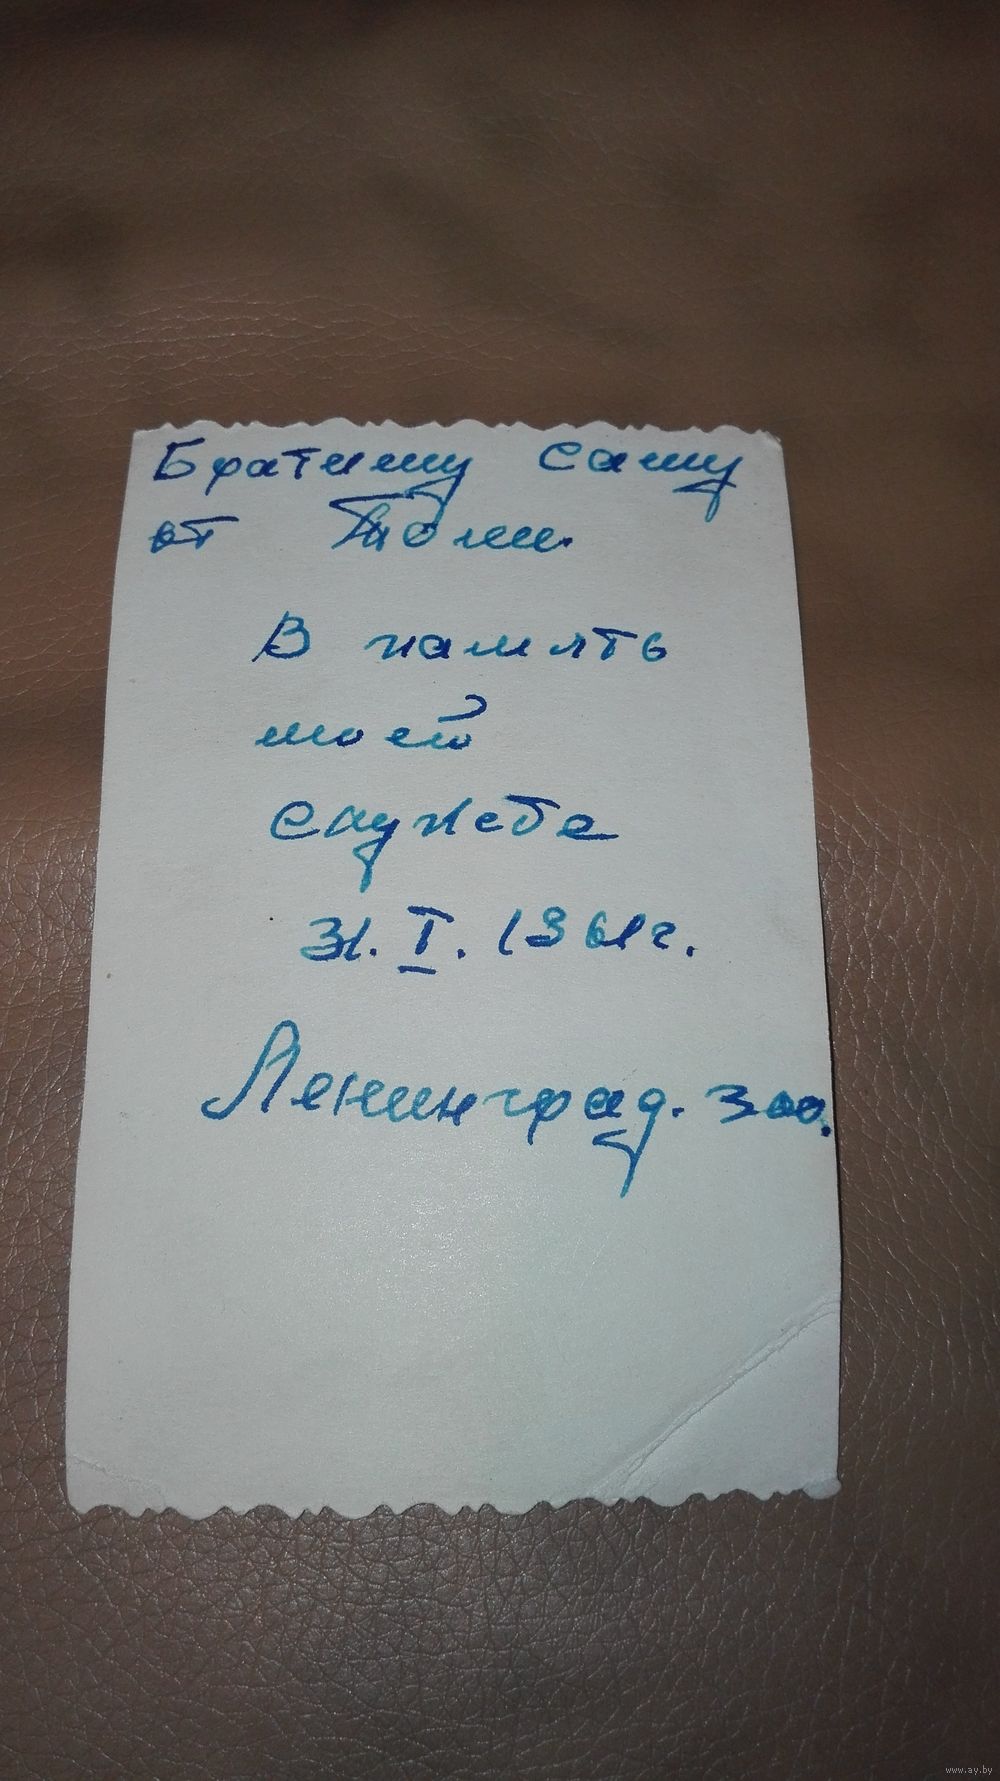 Братишу Сашу
от Толи.
В память
моей
службе
31. I. 1961г.
Ленинград. 300.
www.ay.by